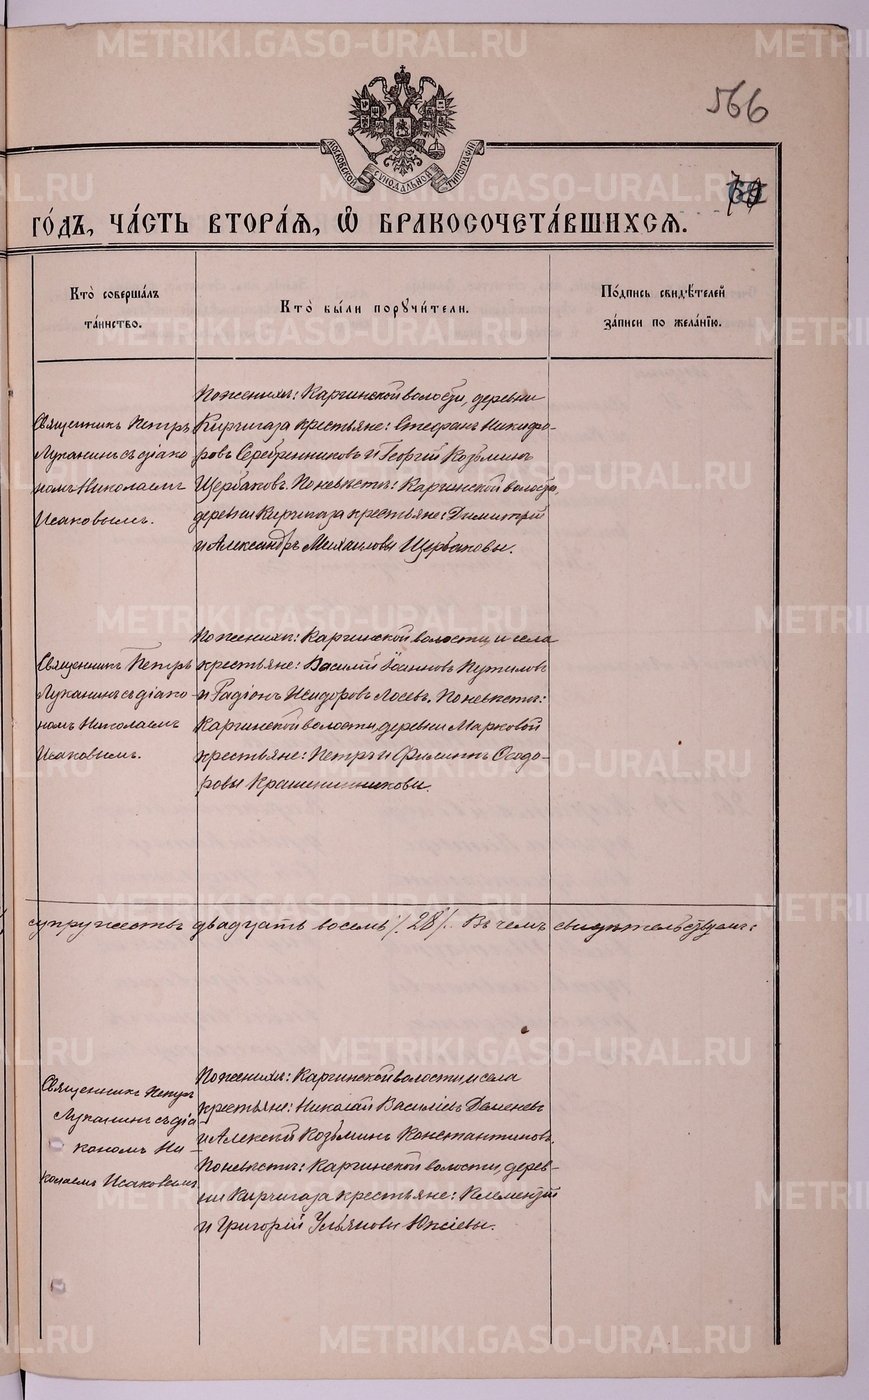 566
МОСКОВСКОЙ СУНОДАЛЬНОЙ ТИПОГРАФІИ
го́дъ, ча́сть втора́я, ѡ҆ бракосочета́вшихся.
Кто̀ соверша́лъ
та́инство.
Кто̀ бы́ли порꙋчи́тели.
По́дпись свидѣ́телей
за́писи по жела́нїю.
Священникъ Петръ
Лупанинъ съ діако-
номъ Николаемъ
Исаковымъ.
По женихѣ: Каргинской волости, деревни
Кирчигаза крестьяне: Стефанъ Никифо-
ровъ Серебренниковъ и Георгій Козьминъ
Щербаковъ. По невѣстѣ: Каргинской волости,
деревни Кирчигаза крестьяне: Димитрій
и Александръ Михаиловы Щербаковы.
Священникъ Петръ
Лупанинъ съ діако-
номъ Николаемъ
Исаковымъ.
По женихѣ: Каргинской волости и села
крестьяне: Василій Іоанновъ Путиловъ
и Радіонъ Исидоровъ Лосевъ. По невѣстѣ:
Каргинской волости, деревни Марковой
крестьяне: Петръ и Филиппъ Ѳеодо-
ровы Крашенинниковы.
супружествъ двадцать восемь /28/. Въ чемъ свидѣтельствуемъ:
Священникъ Петръ
Лупанинъ съ діа
кономъ Ни-
колаемъ Исаковымъ
По женихѣ: Каргинской волости и села
крестьяне: Николай Василіевъ Деменевъ
и Алексій Козьминъ Константиновъ.
По невѣстѣ: Каргинской волости, дерев-
ни Кирчигаза крестьяне: Климентій
и Григорій Ульяновы
METRIKI.GASO-URAL.RU